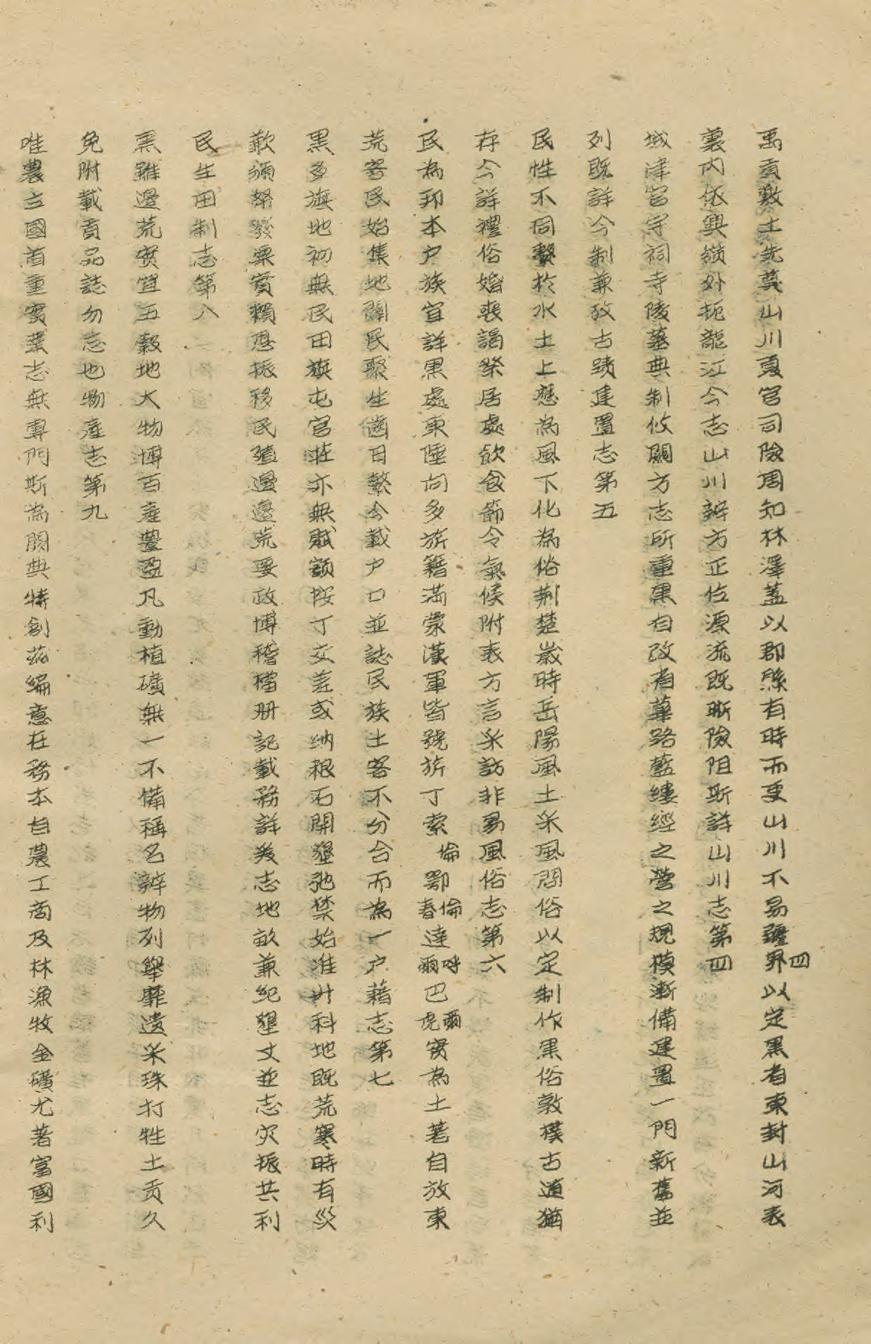 禹貢敷土先奠山川夏官司險周知林澤蓋以郡縣有時而更山川不易疆界四以定黑省東封山河表
裏內依興嶺外扼龍江今志山川辨方正位源流既晰險阻斯詳山川志第四
城津官守祠寺陵墓典制攸關方志所重黑自改省蓽路藍縷經之營之規模漸備建置一門新舊並
列既詳今制兼攷古蹟建置志第五
民性不同繫於水土上應為風下化為俗荊楚歲時岳陽風土采風問俗以定制作黑俗敦樸古道猶
存今詳禮俗婚喪謁祭居處飲食節令氣候附表方言采訪非易風俗志第六
民為邦本戶族宜詳黑處東陲向多旂籍滿蒙漢軍皆號旂丁索倫鄂倫春達呼爾巴爾虎實為土著自放東
荒客民始集地闢民聚生齒日繁今載戶口並誌民族土客不分合而為一戶籍志第七
黑多旗地初無民田旗屯官莊亦無賦額按丁交差或納粮石開墾弛禁始准升科地既荒寒時有災
歉頒帑發粟實賴恩振移民殖邊邊荒要政博稽檔册記載務詳爰志地畝兼紀墾丈並志灾振共利
民生田制志第八
黑雖邊荒實宜五穀地大物博百產豐盈凡動植礦無一不備稱名辨物列舉靡遺采珠打牲土貢久
免附載貢品誌勿忘也物產志第九
唯農立國首重實業志無專門斯為闕典特創茲編意在務本自農工商及林漁牧金礦尤著富國利